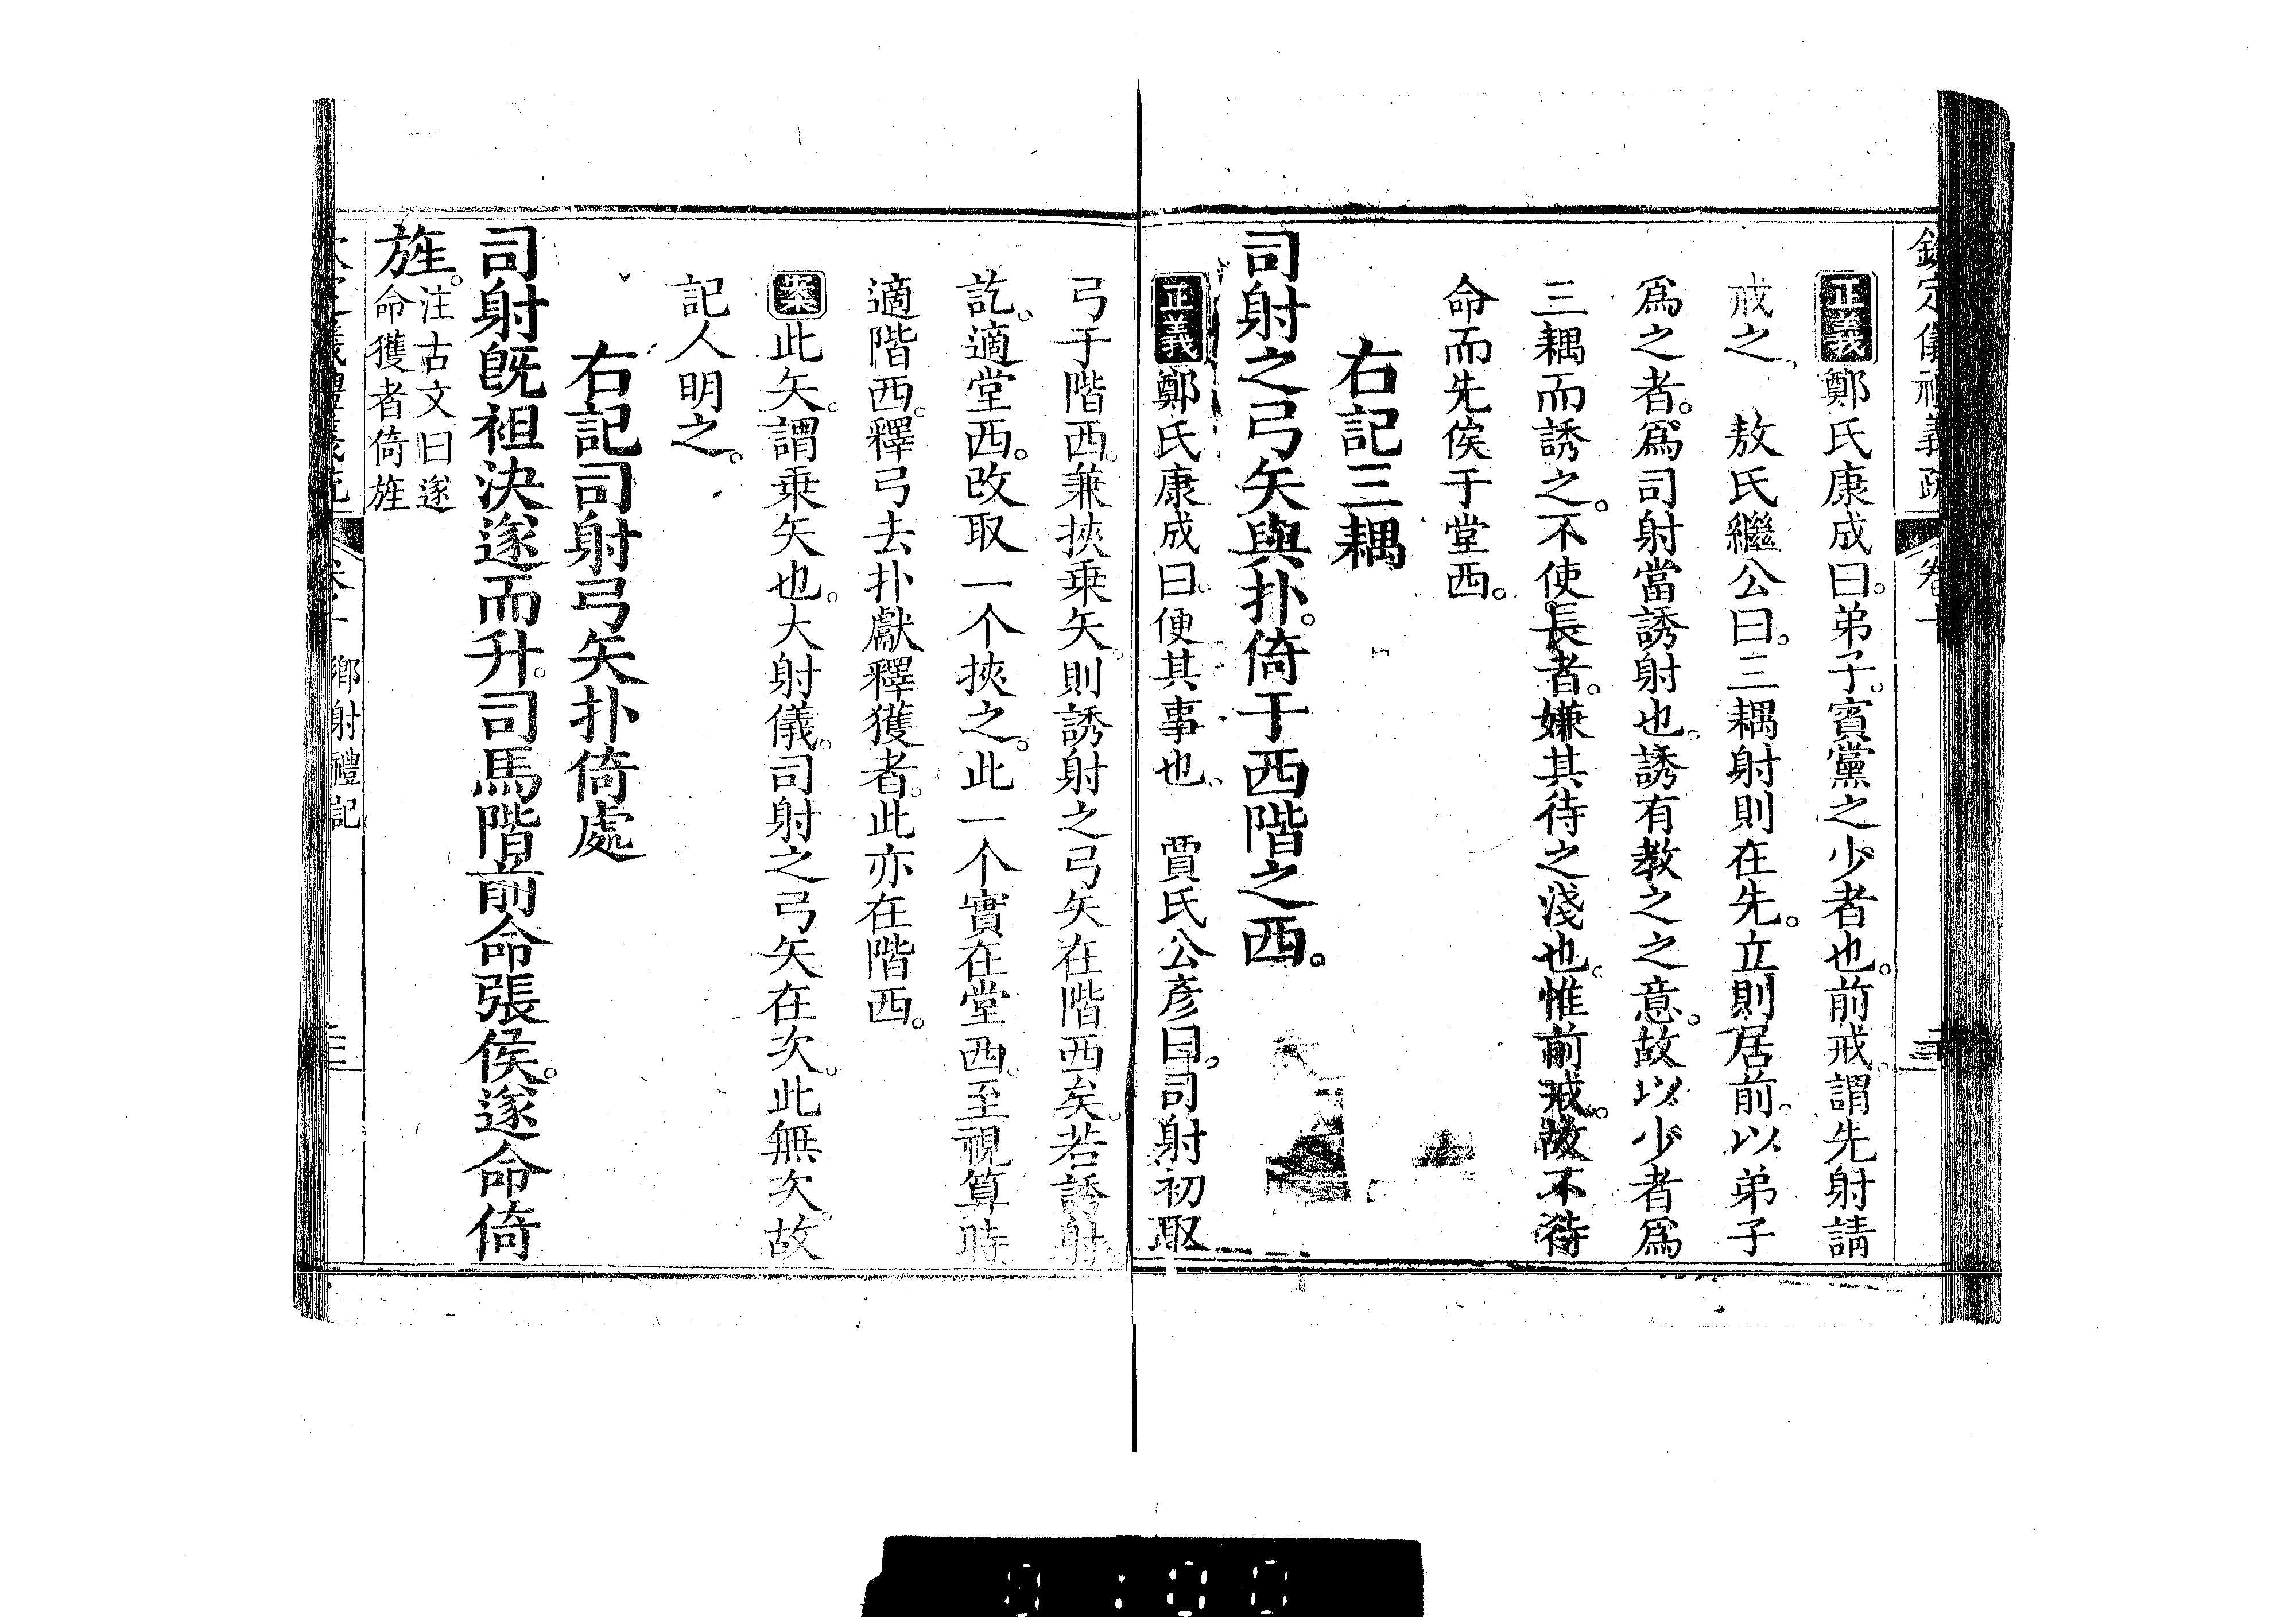 欽定儀禮義疏 卷十
正義鄭氏康成曰。弟子。賓黨之少者也。前戒。謂先射請
戒之、　敖氏繼公曰。三耦射則在先。立則居前。以弟子
爲之者。爲司射當誘射也。誘有教之之意。故以少者爲
三耦而誘之。不使長者。嫌其待之淺也。惟前戒。故不待
命而先俟于堂西。
右記三耦
司射之弓矢與扑。倚于西階之西。
正義鄭氏康成曰。便其事也、　賈氏公彥曰。司射初取
弓于階西。兼挾乗矢。則誘射之弓矢在階西矣。若誘射
訖。適堂西。改取一个挾之。此一个實在堂西。至視算時。
適階西。釋弓去扑獻釋獲者。此亦在階西。
案此矢。謂乗矢也。大射儀。司射之弓矢在次。此無次。故
記人明之。
右記司射弓矢扑倚處
司射旣袒決遂而升。司馬階前命張侯。遂命倚
旌。注古文曰遂
命獲者倚旌
鄉射禮記